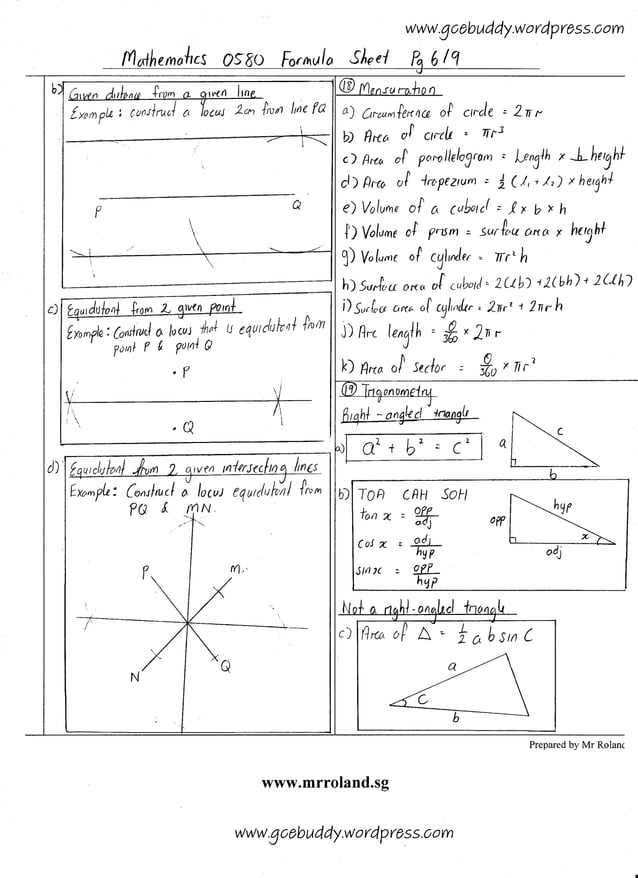 www.gcebuddy.wordpress.com
Mathematics 0580 Formula Sheet Pg 6/9
b) Given distance from a given line
Example: construct a locus 2cm from line PQ
P
Q
c) Equidistant from 2 given point
Example: Construct a locus that is equidistant from
point P & point Q
• P
• Q
d) Equidistant from 2 given intersecting lines
Example: Construct a locus equidistant from
PQ & MN.
P
M
N
Q
⑱ Mensuration
a) Circumference of circle = 2πr
b) Area of circle = πr³
c) Area of parallelogram = Length × ⊥ height
d) Area of trapezium = ½ (l₁ + l₂) × height
e) Volume of a cuboid = l × b × h
f) Volume of prism = surface area × height
g) Volume of cylinder = πr²h
h) Surface area of cuboid = 2(lb) + 2(bh) + 2(lh)
i) Surface area of cylinder = 2πr² + 2πrh
j) Arc length = θ/360 × 2πr
k) Area of sector = θ/360 × πr²
⑲ Trigonometry
Right-angled triangle
a) a² + b² = c²
a
c
b
b) TOA CAH SOH
tan x = opp/adj
cos x = adj/hyp
sin x = opp/hyp
hyp
opp
x
adj
Not a right-angled triangle
c) Area of △ = ½ a b sin C
a
C
b
Prepared by Mr Roland
www.mrroland.sg
www.gcebuddy.wordpress.com